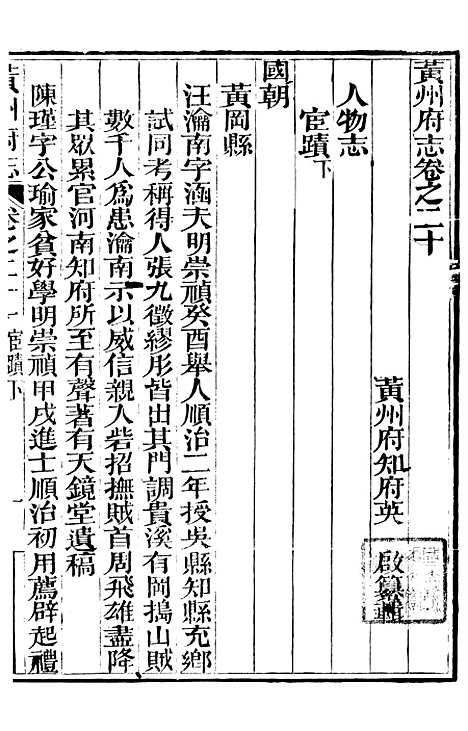 黃州府志卷之二十
黃州府知府英啟纂輯
人物志
宦蹟下
國朝
黃岡縣
汪瀹南字涵夫明崇禎癸酉舉人順治二年授吳縣知縣充鄉
試同考稱得人張九徵繆彤皆出其門調貴溪有岡搗山賊
數千人為患瀹南示以威信親人砦招撫賊首周飛雄盡降
其眾累官河南知府所至有聲著有天鏡堂遺稿
陳瑾字公瑜家貧好學明崇禎甲戌進士順治初用薦辟起禮
黃州府志
卷之二十
宦蹟下